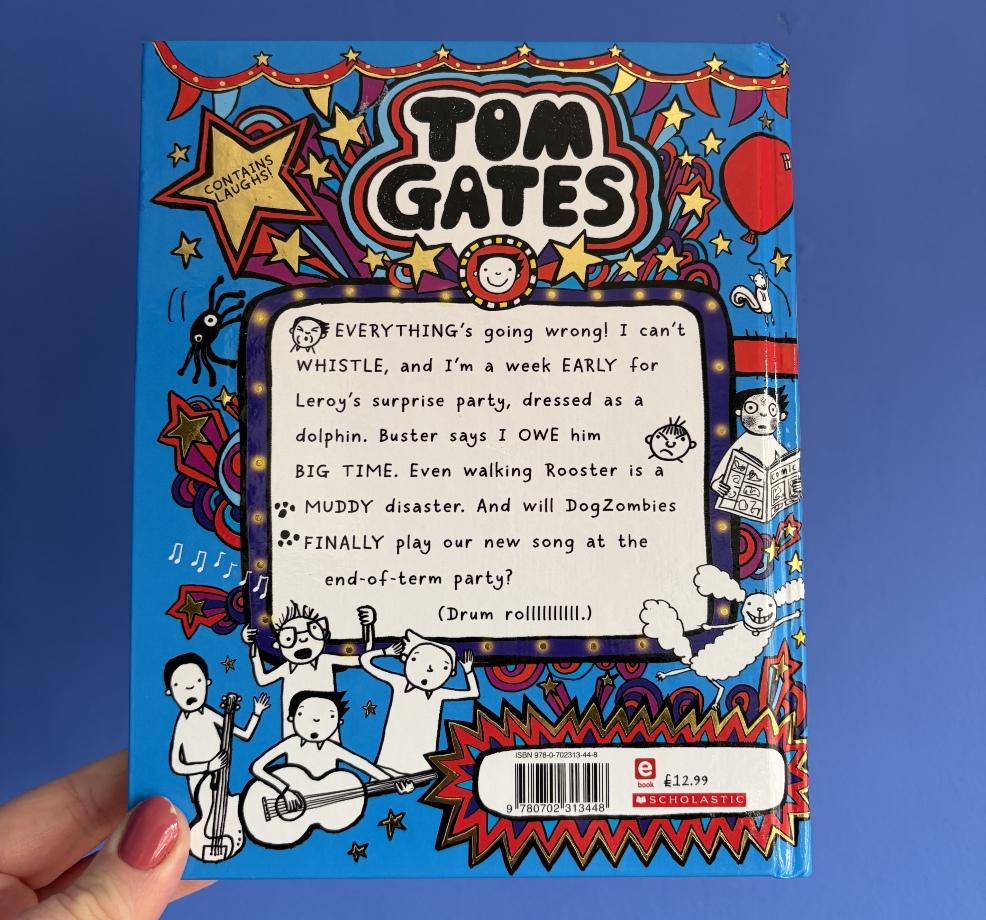 CONTAINS
LAUGHS!
TOM
GATES
EVERYTHING's going wrong! I can't
WHISTLE, and I'm a week EARLY for
Leroy's surprise party, dressed as a
dolphin. Buster says I OWE him
BIG TIME. Even walking Rooster is a
MUDDY disaster. And will DogZombies
FINALLY play our new song at the
end-of-term party?
(Drum rollllllllll.)
comic
ISBN 978-0-702313-44-8
9 780702 313448
e
book
£12.99
SCHOLASTIC